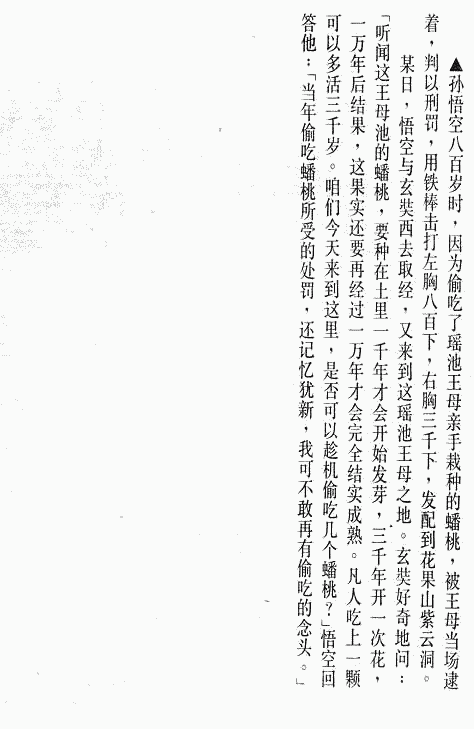 ▲孙悟空八百岁时，因为偷吃了瑶池王母亲手栽种的蟠桃，被王母当场逮
着，判以刑罚，用铁棒击打左胸八百下，右胸三千下，发配到花果山紫云洞。
某日，悟空与玄奘西去取经，又来到这瑶池王母之地。玄奘好奇地问：
「听闻这王母池的蟠桃，要种在土里一千年才会开始发芽，三千年开一次花，
一万年后结果，这果实还要再经过一万年才会完全结实成熟。凡人吃上一颗
可以多活三千岁。咱们今天来到这里，是否可以趁机偷吃几个蟠桃？」悟空回
答他：「当年偷吃蟠桃所受的处罚，还记忆犹新，我可不敢再有偷吃的念头。」